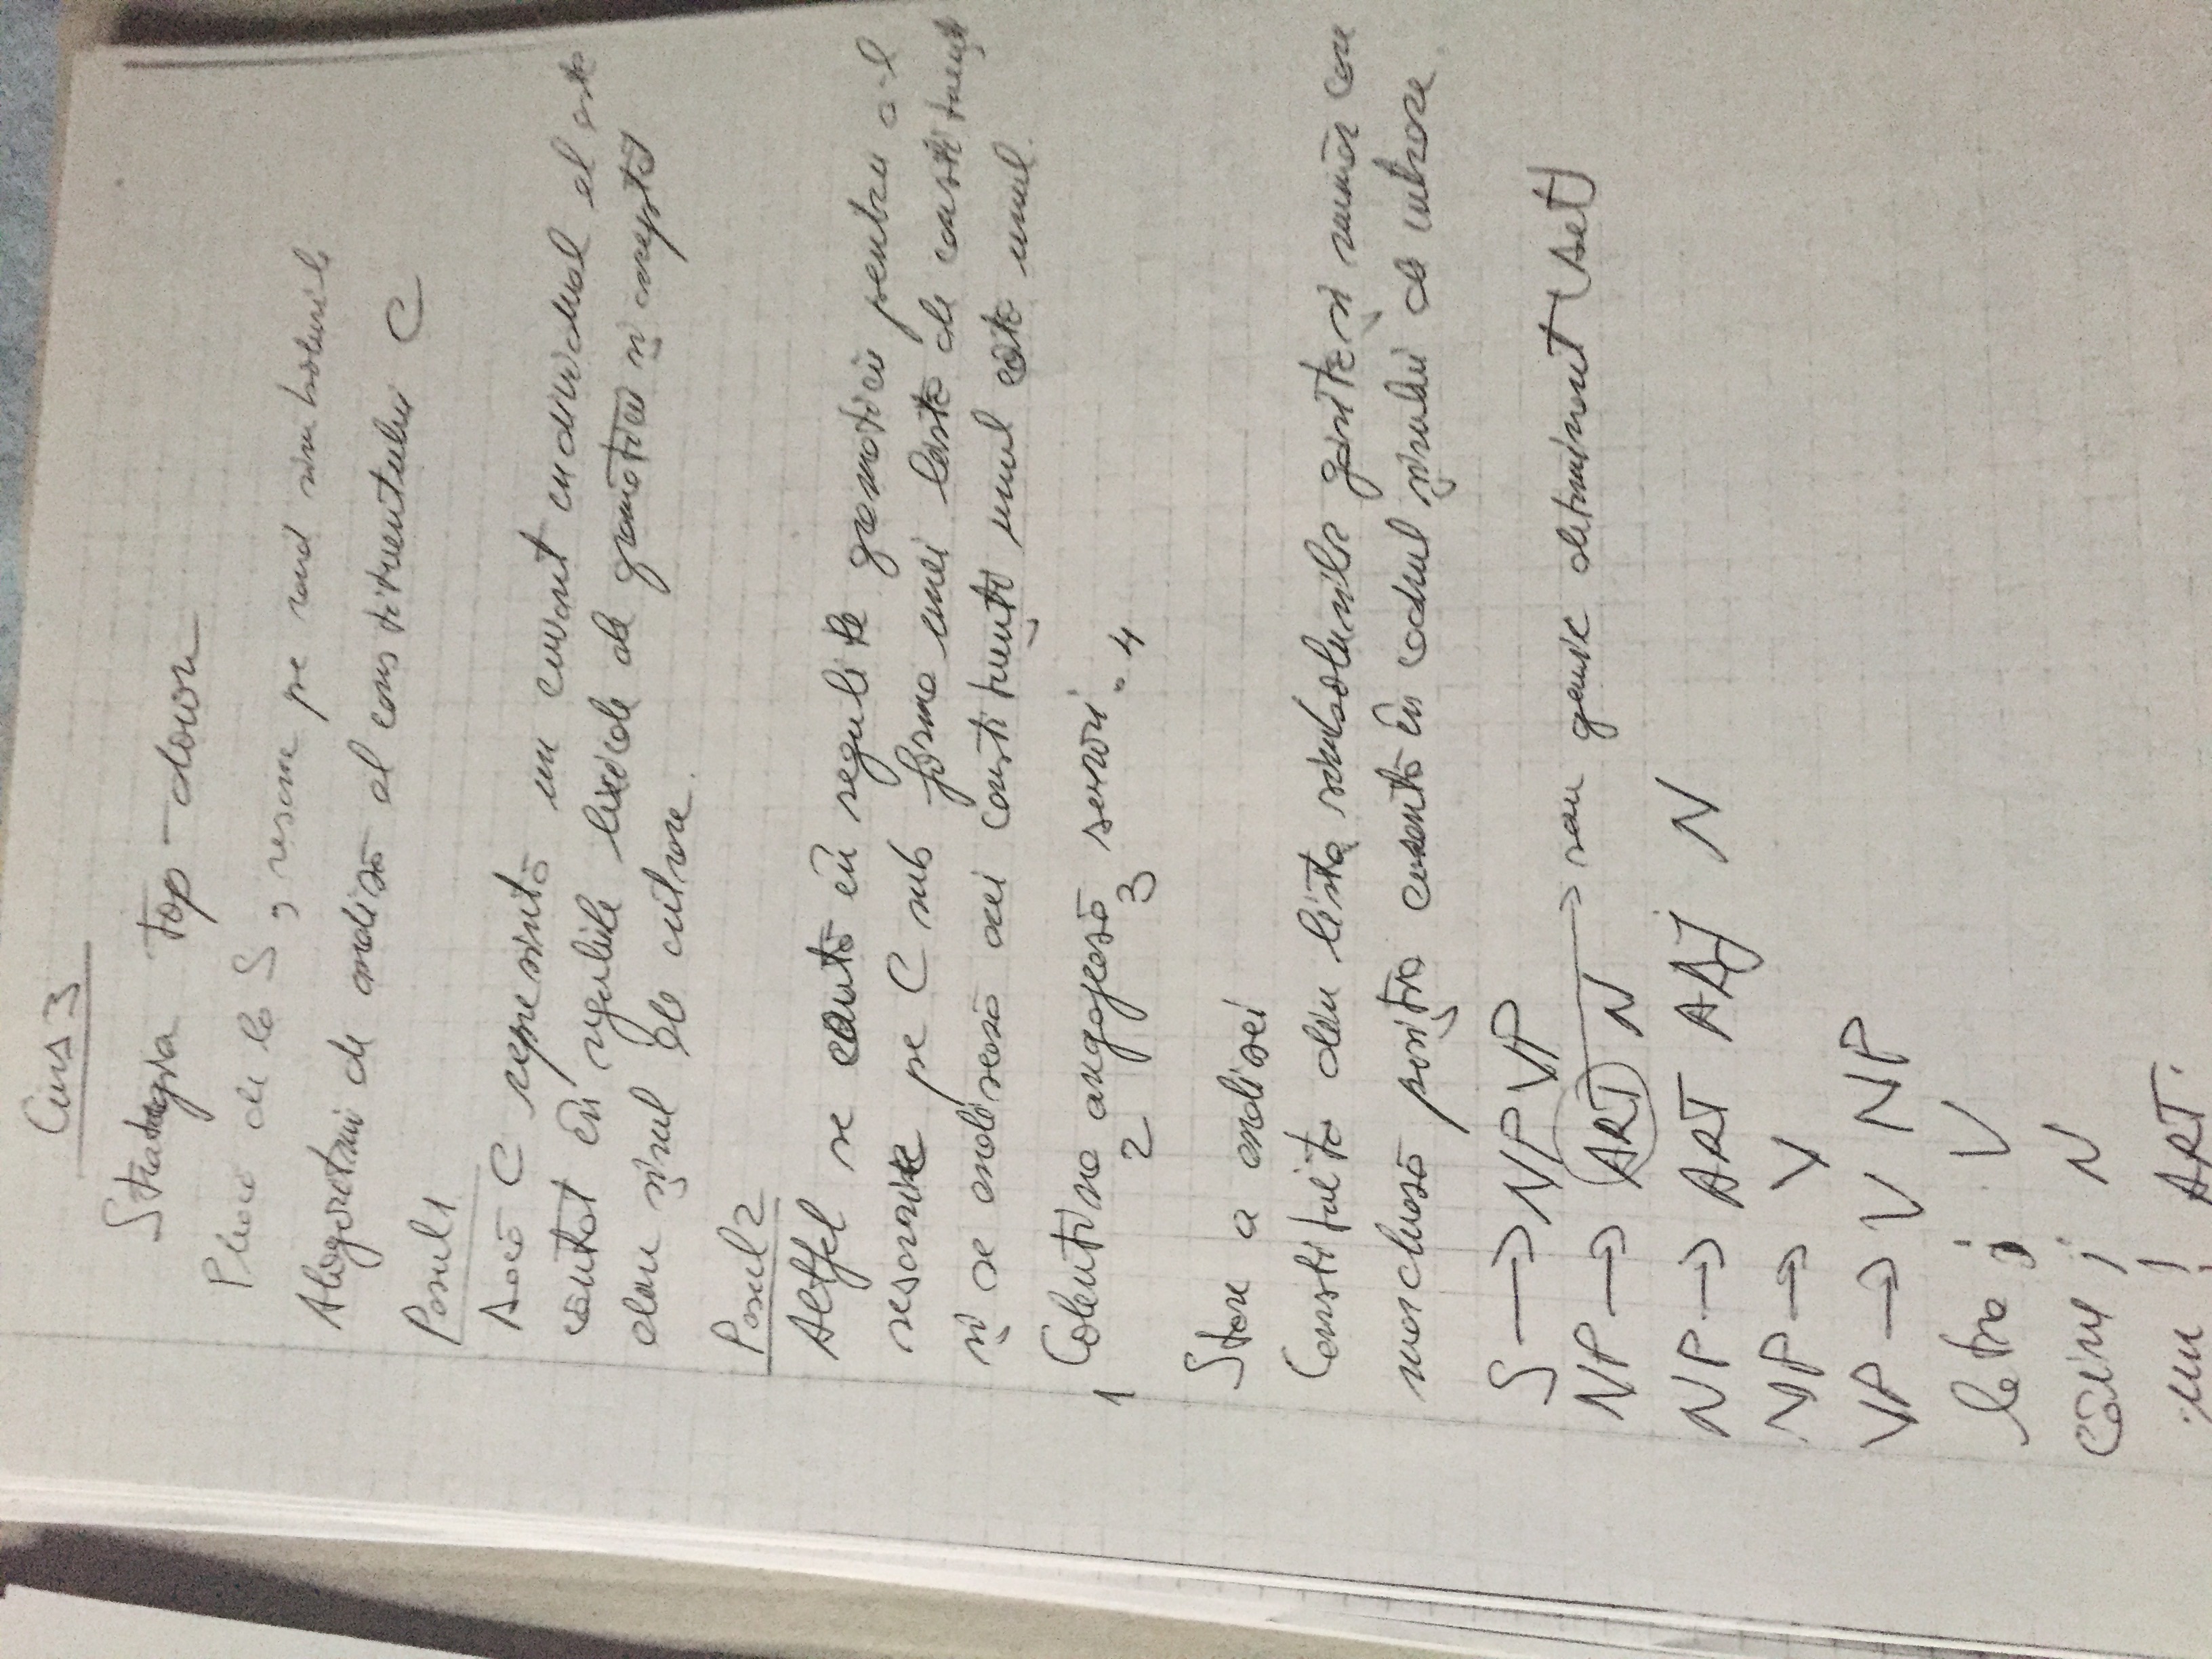 Curs 3
Strategia top-down
Pleacă de la S, rescrie pe rand simbolurile
Alogoritmi de analiză al constituentului C
Pasul 1
Dacă C reprezintă un cuvant individual el este
căutat în regulile lexicale ale gramaticii și acceptă
din șirul de intrare.
Pasul 2
Altfel se caută în regulile gramaticii pentru a-l
rescrie pe C sub forma unei liste de constituenți
și se analizează acei constituenți unul câte unul.
1 Colentina 2 angajează 3 surori. 4
Stare a analizei
Constituită din lista simbolurilor găsite și număr care
marchează poziția curentă în cadrul șirului de intrare
S → NP VP
NP → ART N → sau generic determinant (Det)
NP → ART ADJ N
NP → V
VP → V NP
latra ; V
câine ; N
un ! ART.